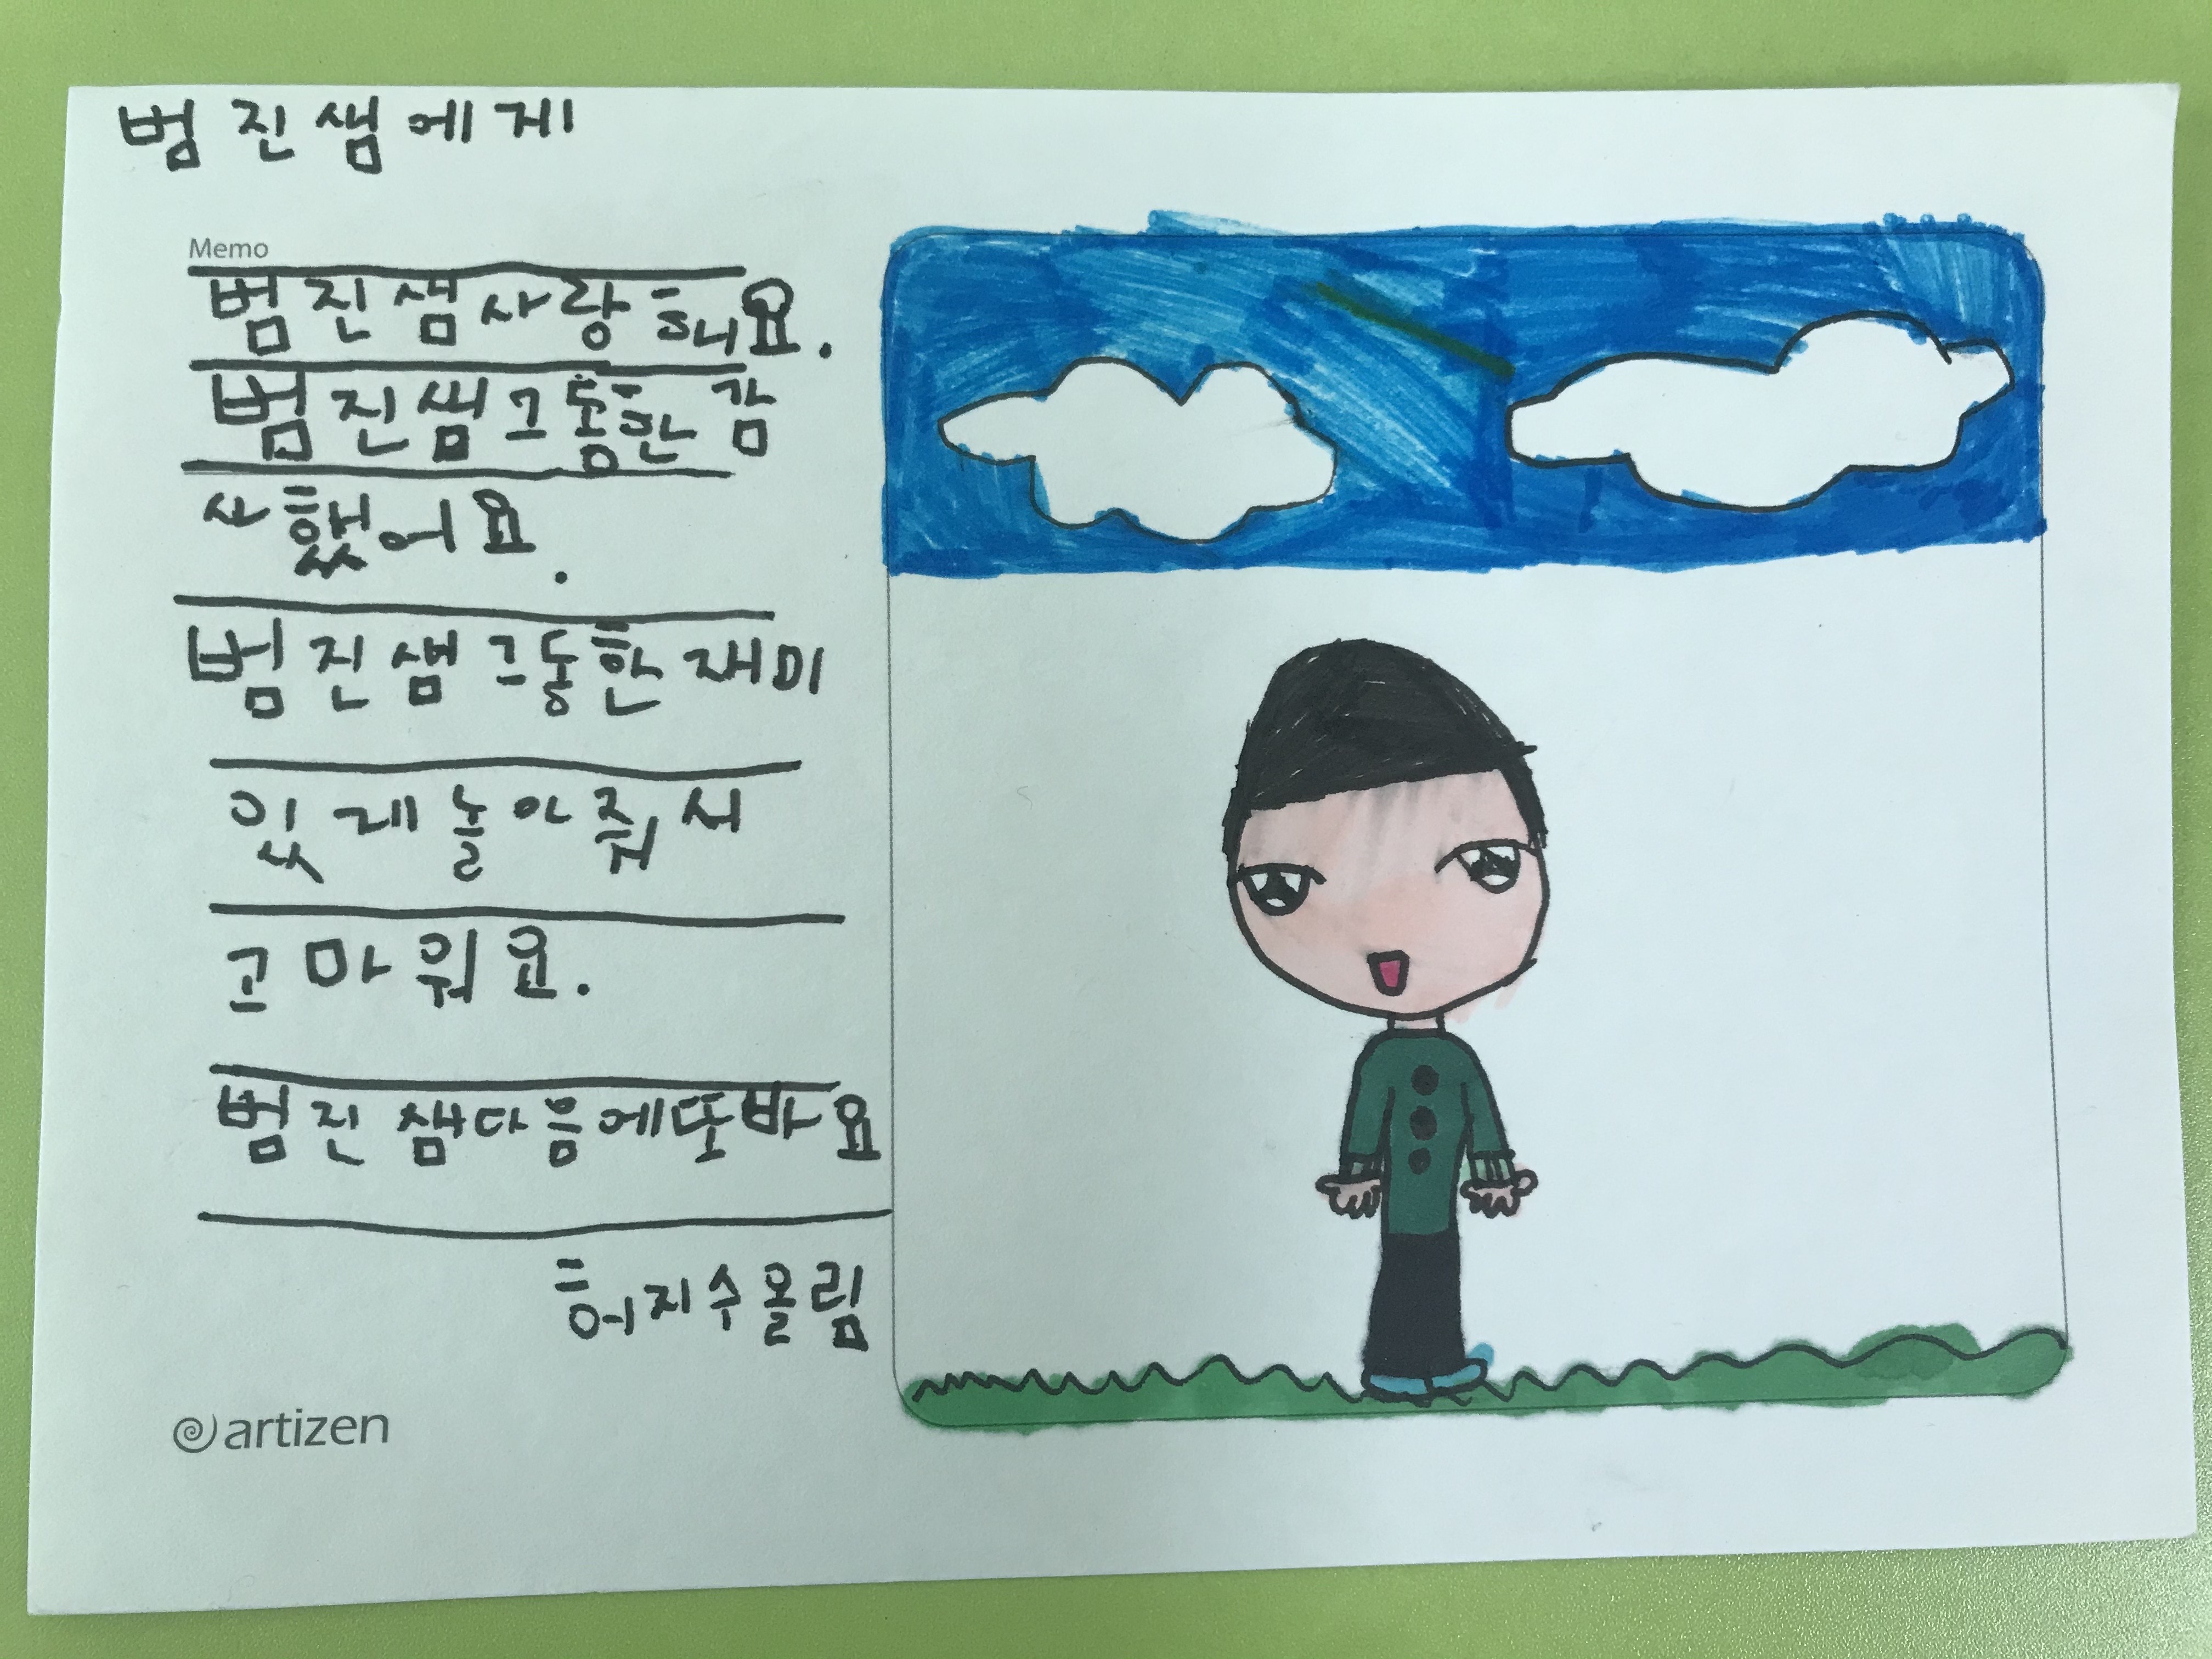 범진샘에게
Memo
범진샘사랑해요.
범진샘그동한감
사했어요.
범진샘그동한재미
있게놀아줘서
고마워요.
범진샘다음에또바요
허지수올림
artizen